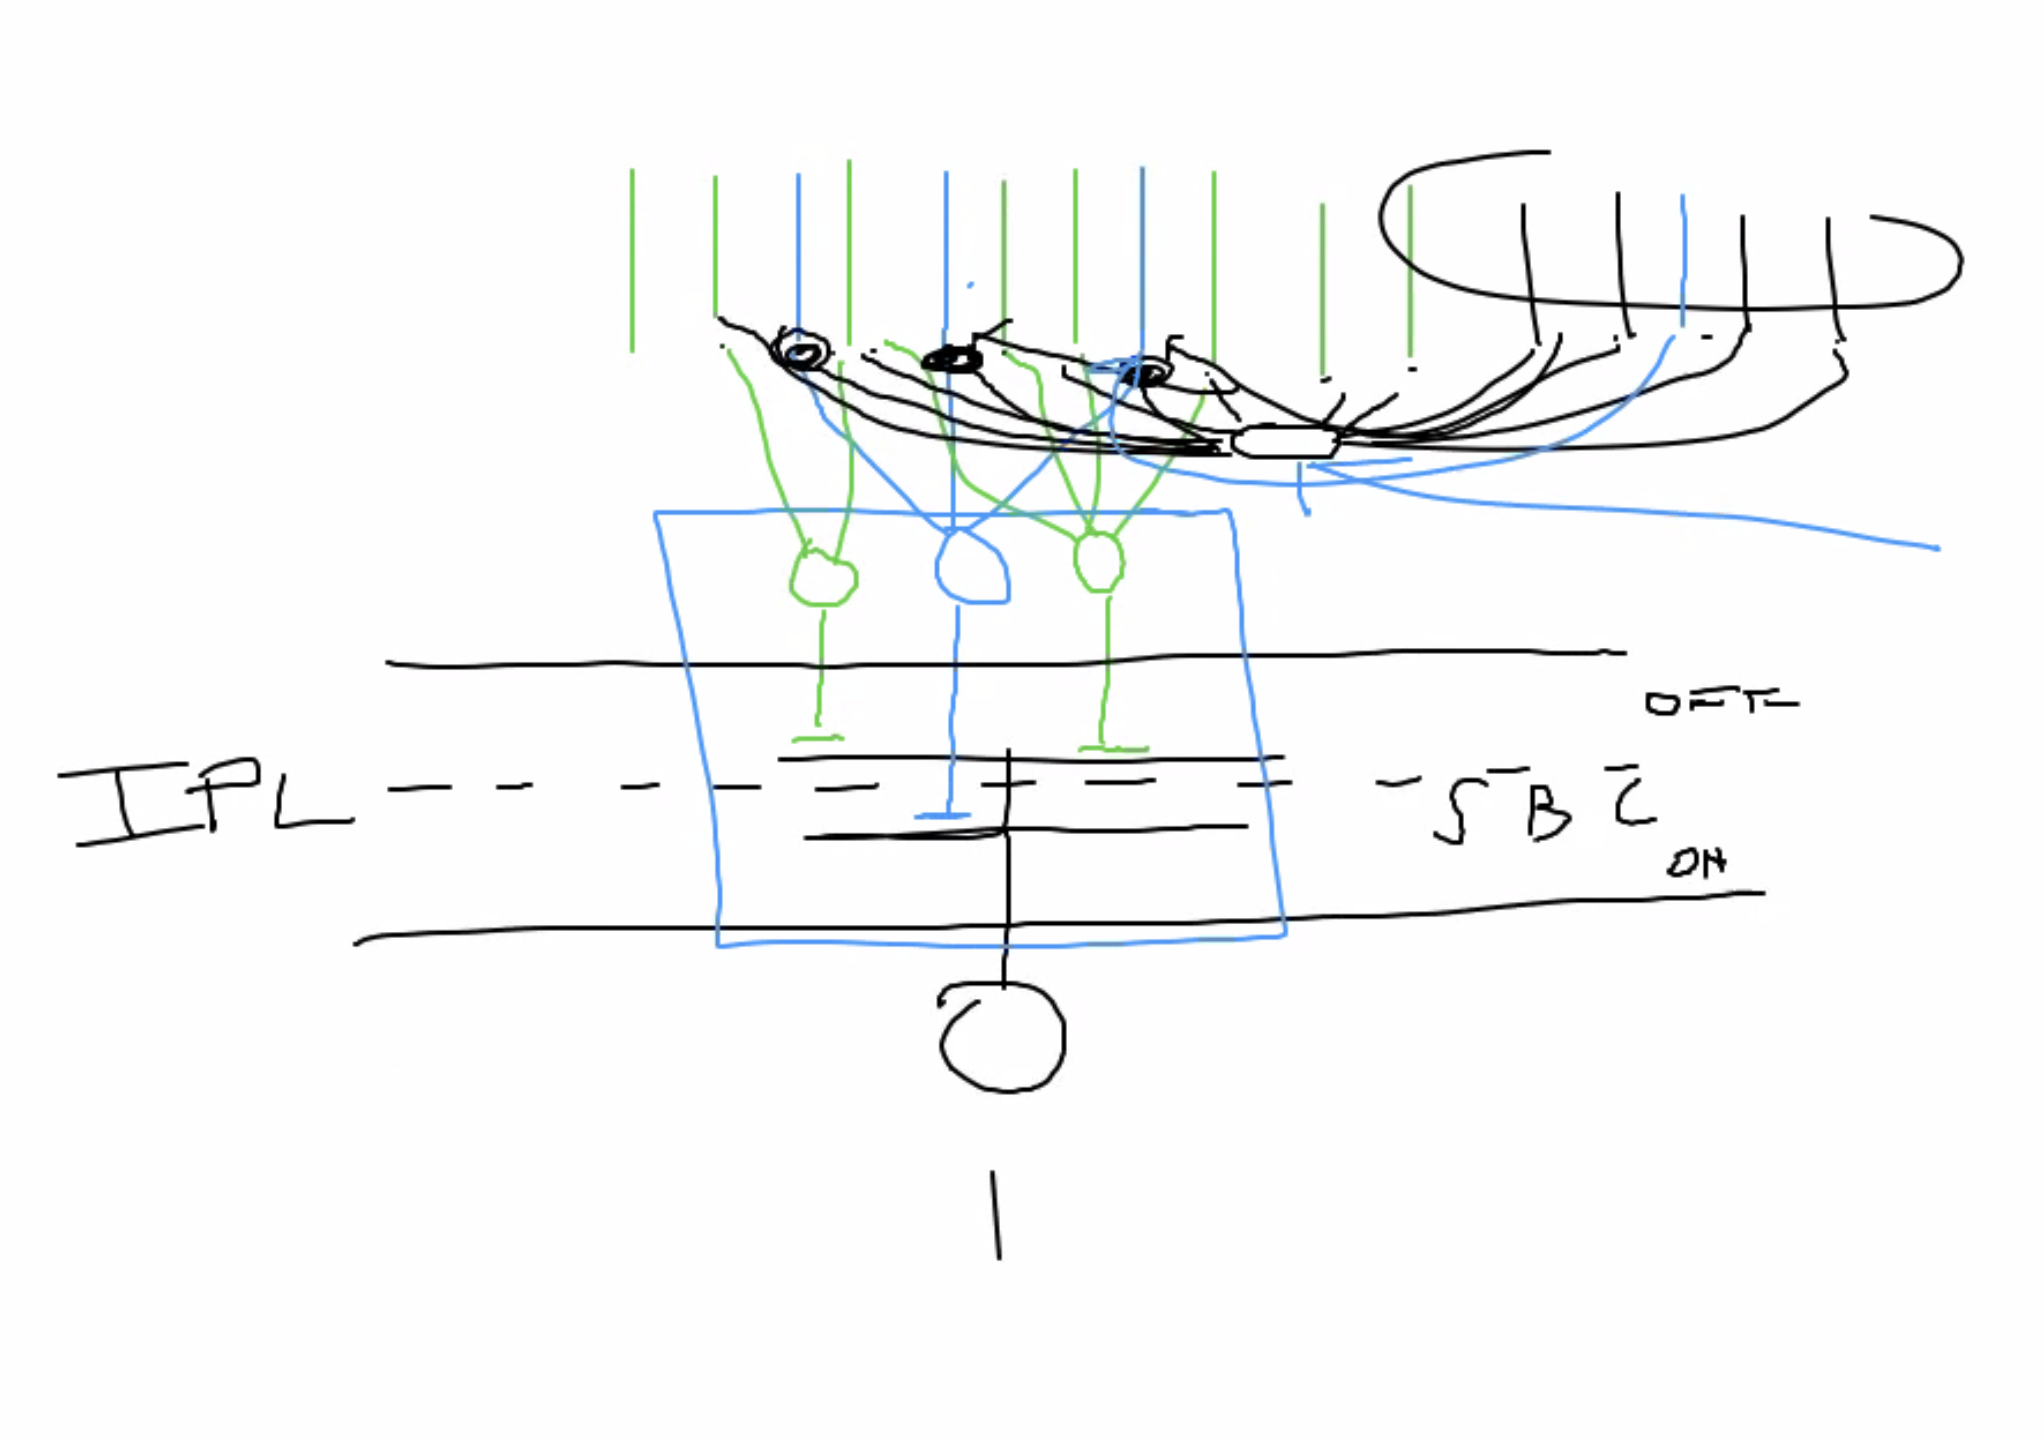 OFF
IPL
SBC
ON